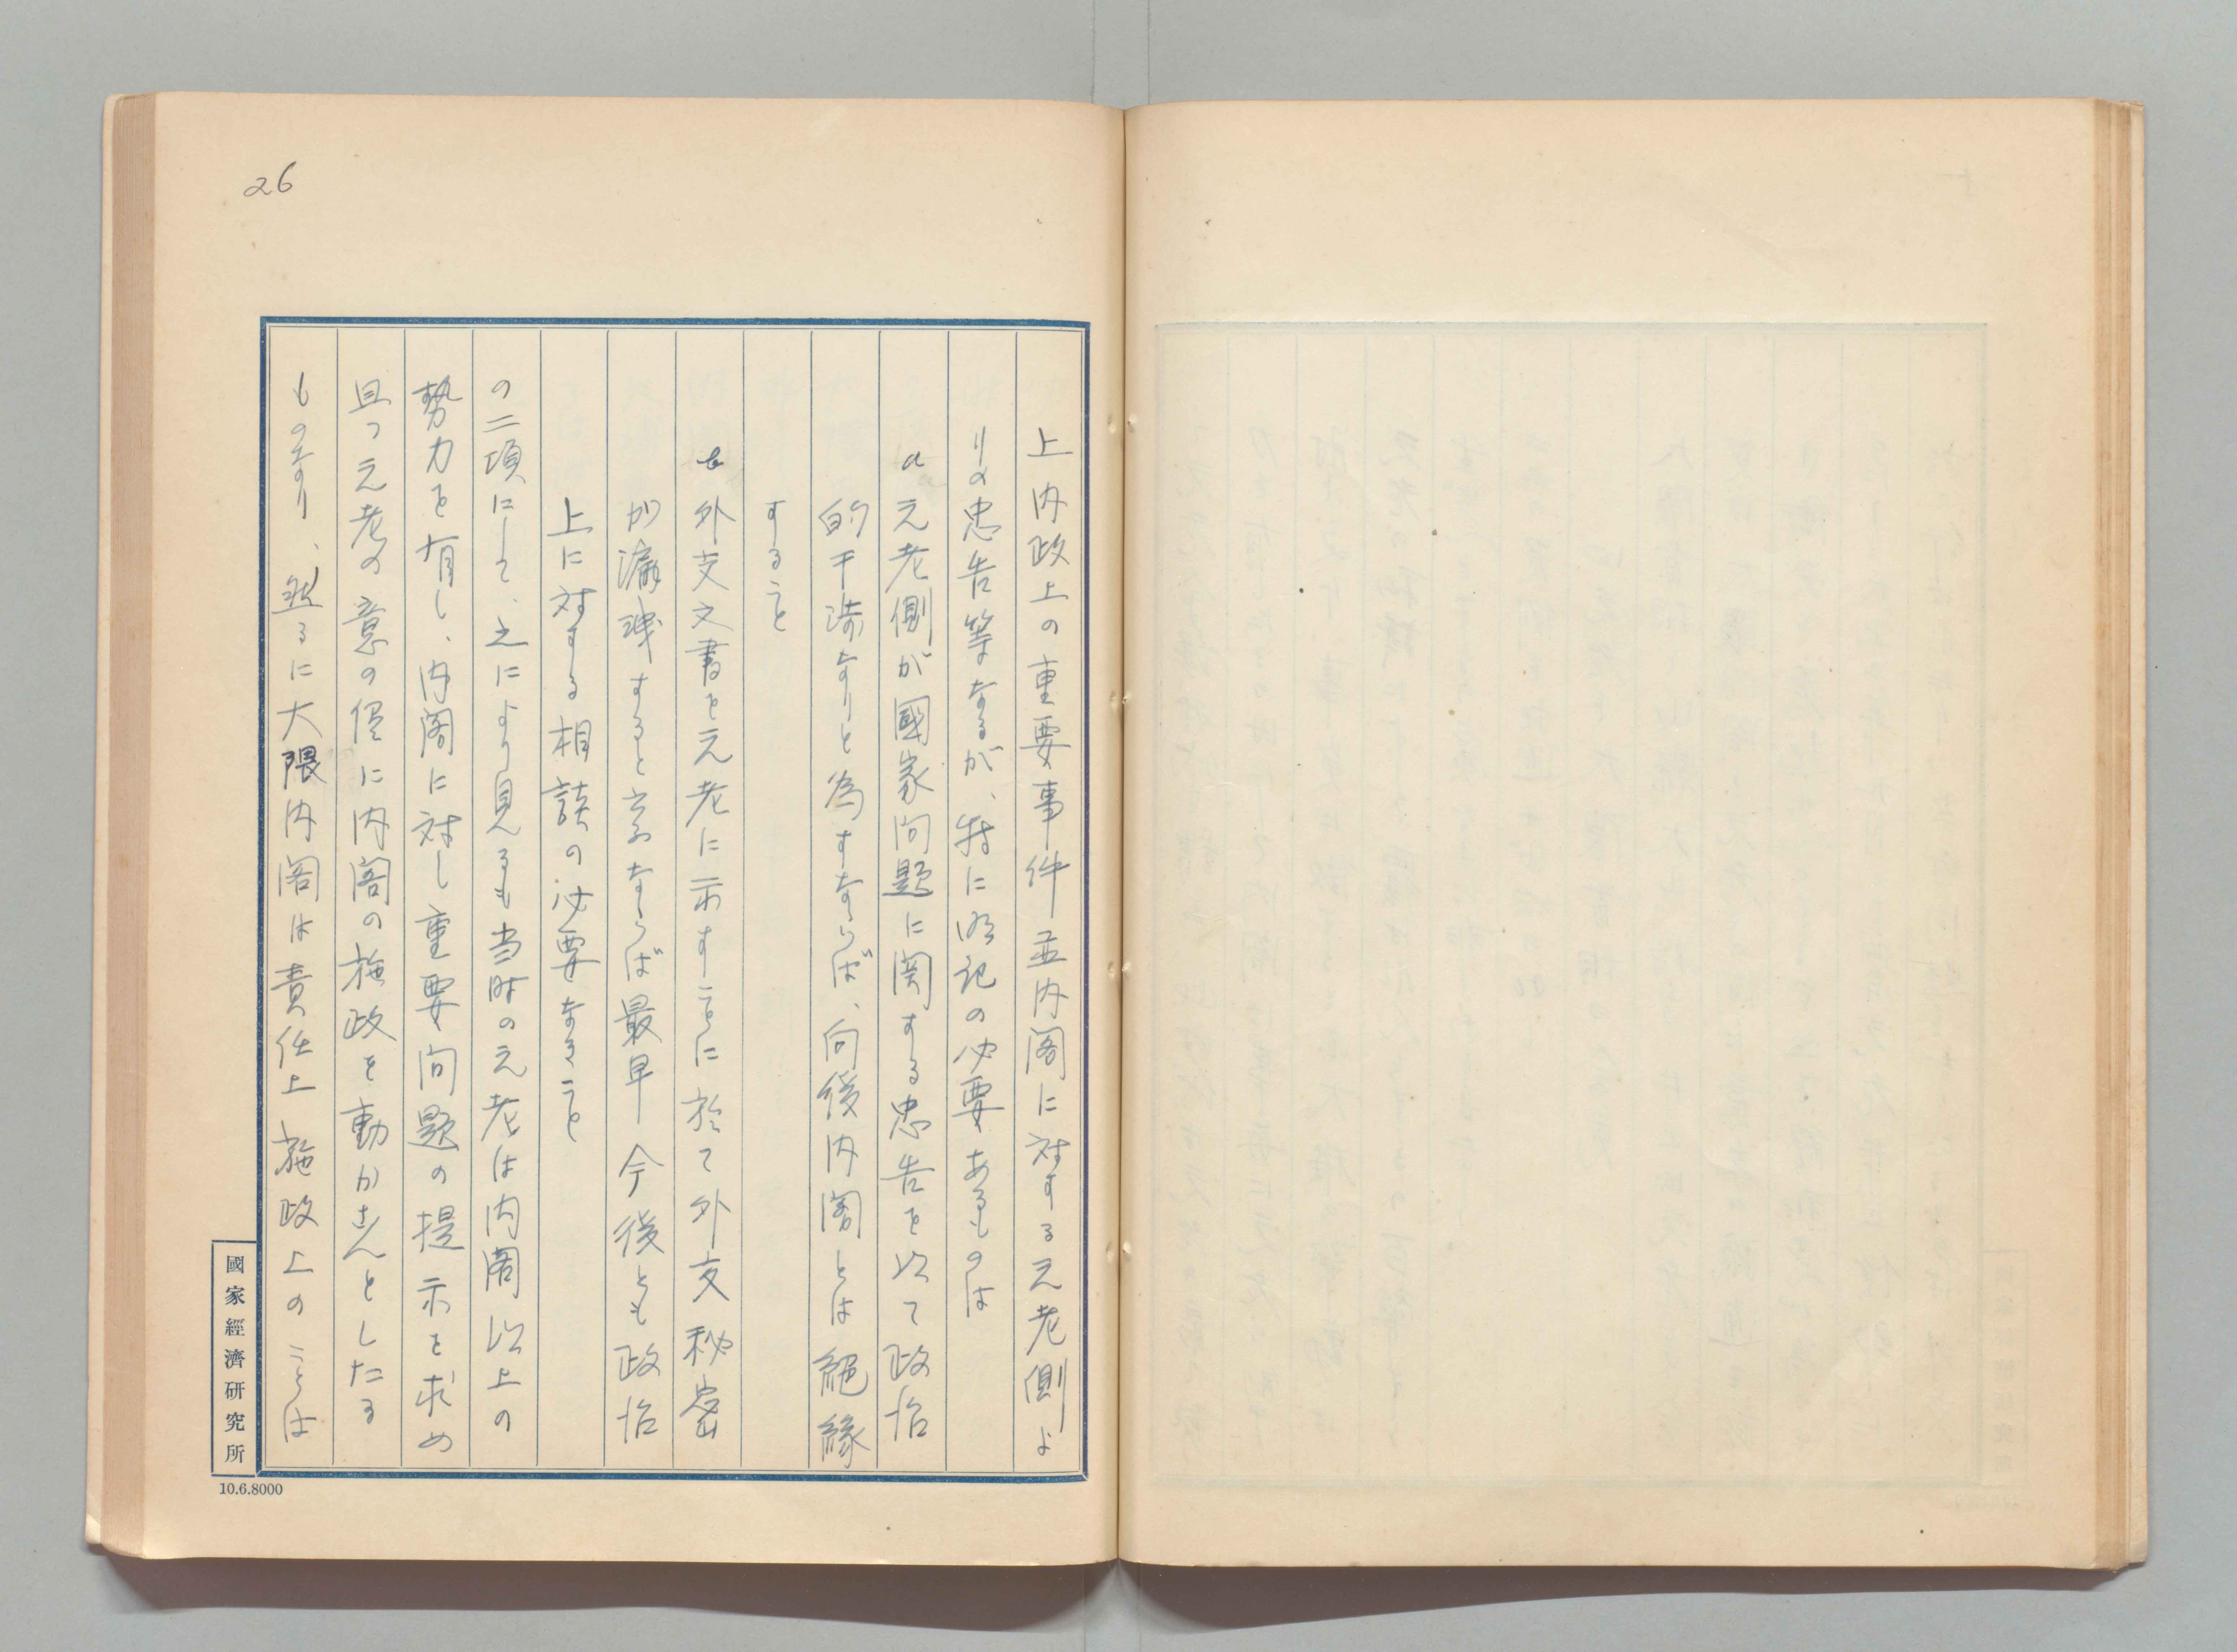 26
上内政上の重要事件並内閣に対する元老側よ
りの忠告等なるが、特に明記の必要あるものは
a 元老側が國家问題に関する忠告を以て政治
的干渉なりと為すならば、向後内閣とは絕緣
すること
b 外交文書を元老に示すことに於て外交秘密
が漏洩すると云ふならば最早今後とも政治
上に対する相談の必要なきこと
の二項にして、之により見るも当時の元老は内閣以上の
勢力を有し、内閣に対し重要问題の提示を求め
且つ元老の意の侭に内閣の施政を動かさんとしたる
ものなり、然るに大隈内閣は責任上施政上のことは
國家經濟研究所
10.6.8000